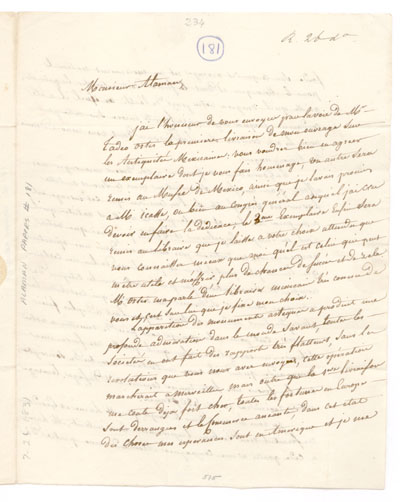 234
181
R. 26 do
Monsieur Alaman,
j'ai l'honneur de vous envoyer par la voie de Mr
Tadeo Ortiz la premiere livraison de mon ouvrage sur
les Antiquités Mexicaines; vous voudrez bien en agreer
un exemplaire dont je vous fais hommage, un autre sera
remis au Musée de Mexico, ainsi que je l'avais promis
à Mr ou bien au congrès général auquel j'ai cru
devoir en faire la dedicace, le exemplaire sera
remis au libraire que je laisse à votre choix attendu que
vous connaissez mieux que moi quel est celui que peut
m'être utile et m'offrir plus de chances de succès et de zele
Mr Ortiz m'a parlé d'un libraire nouveau
vous et c'est sur lui que je fixe mon choix.
L'apparition des monuments azteques a produit une
profonde admiration dans le monde savant, toutes les
Sociétés en ont fait des rapports très flatteurs, sans la
revolution que nous avons essuyée, cette operation
marchait à merveille, mais outre que la 1ere livraison
me coute deja fort cher, toutes les fortunes en Europe
sont derangées et le commerce aneanti dans cet état
des choses mes esperances sont en Amerique et je vous
ALAMAN PAPERS # 181